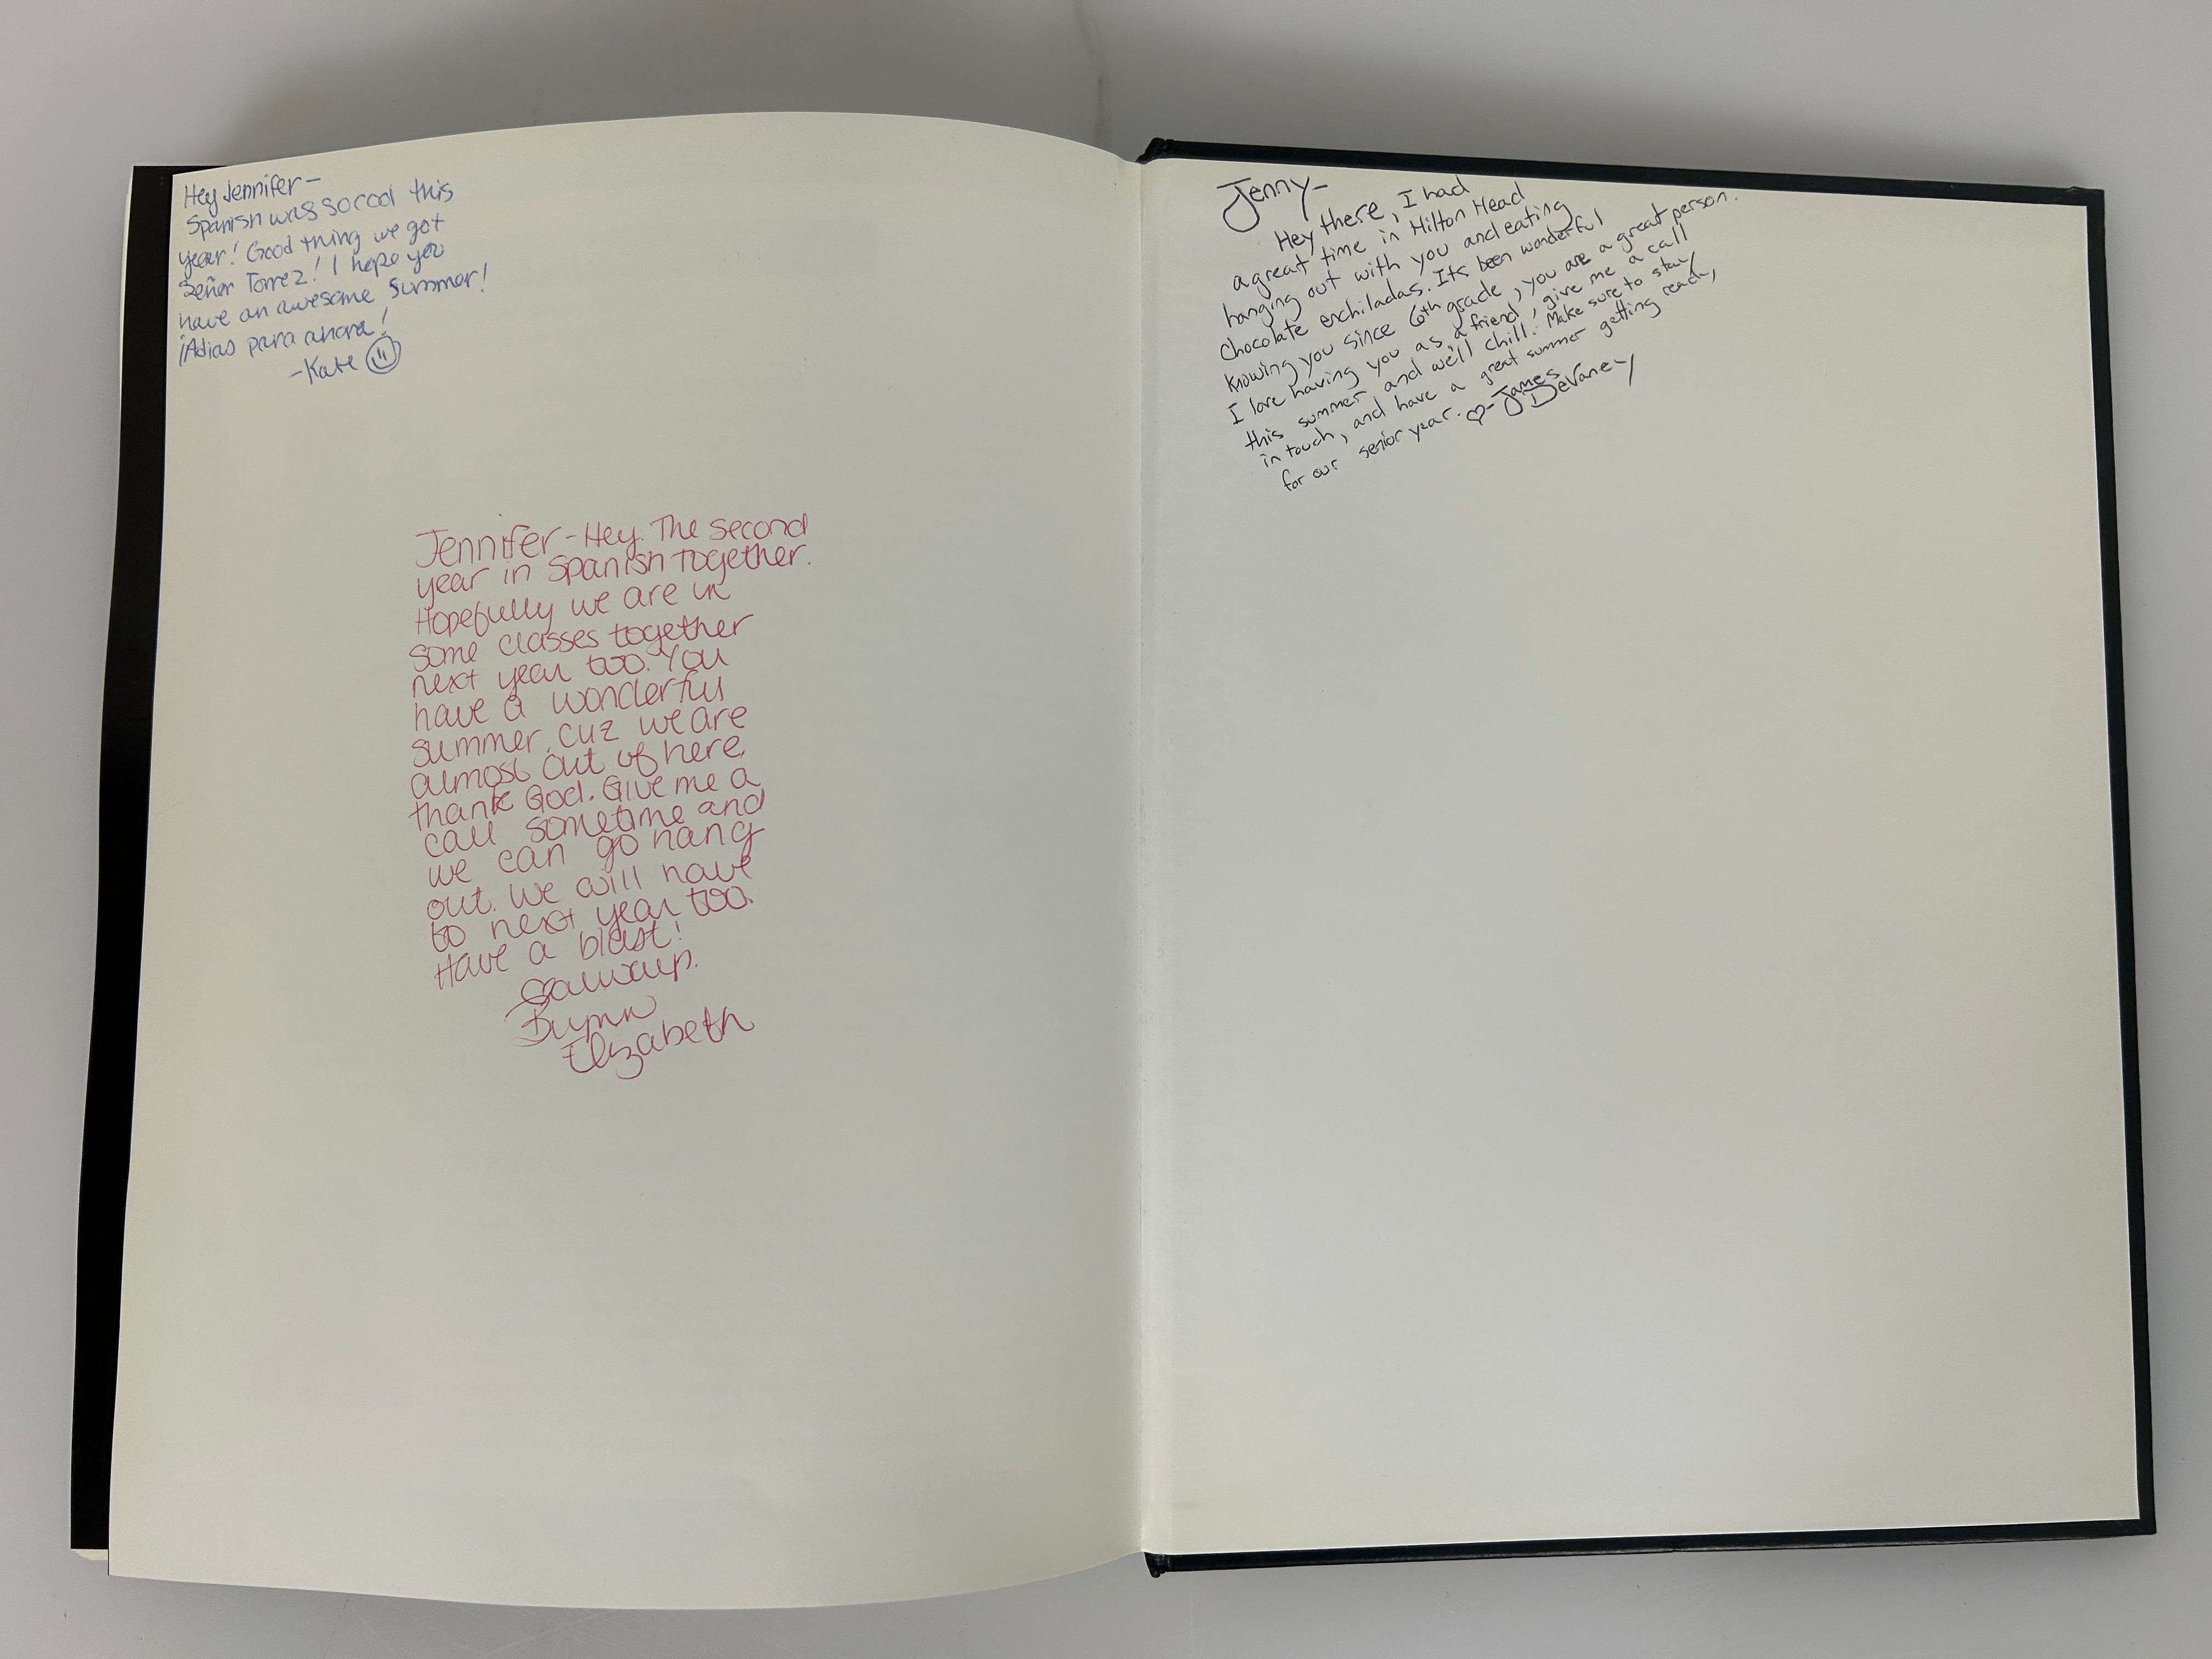 Hey Jennifer-
Spanish was so cool this
year! Good thing we got
Señor Torrez! I hope you
have an awesome summer!
¡Adios para ahora!
-Kate
Jennifer-Hey. The second
year in Spanish together.
Hopefully we are in
some classes together
next year too. You
have a wonderful
summer, cuz we are
almost out of here,
thank God. Give me a
call sometime and
we can go hang
out. We will have
to next year too.
Have a blast!
Elizabeth
Jenny-
Hey there, I had
a great time in Hilton Head
hanging out with you and eating
Chocolate enchiladas. Its been wonderful
knowing you since 6th grade, you are a great person.
I love having you as a friend, give me a call
this summer and we'll chill. Make sure to stay
in touch, and have a great summer getting ready,
for our senior year. ♡-James
DeVaney